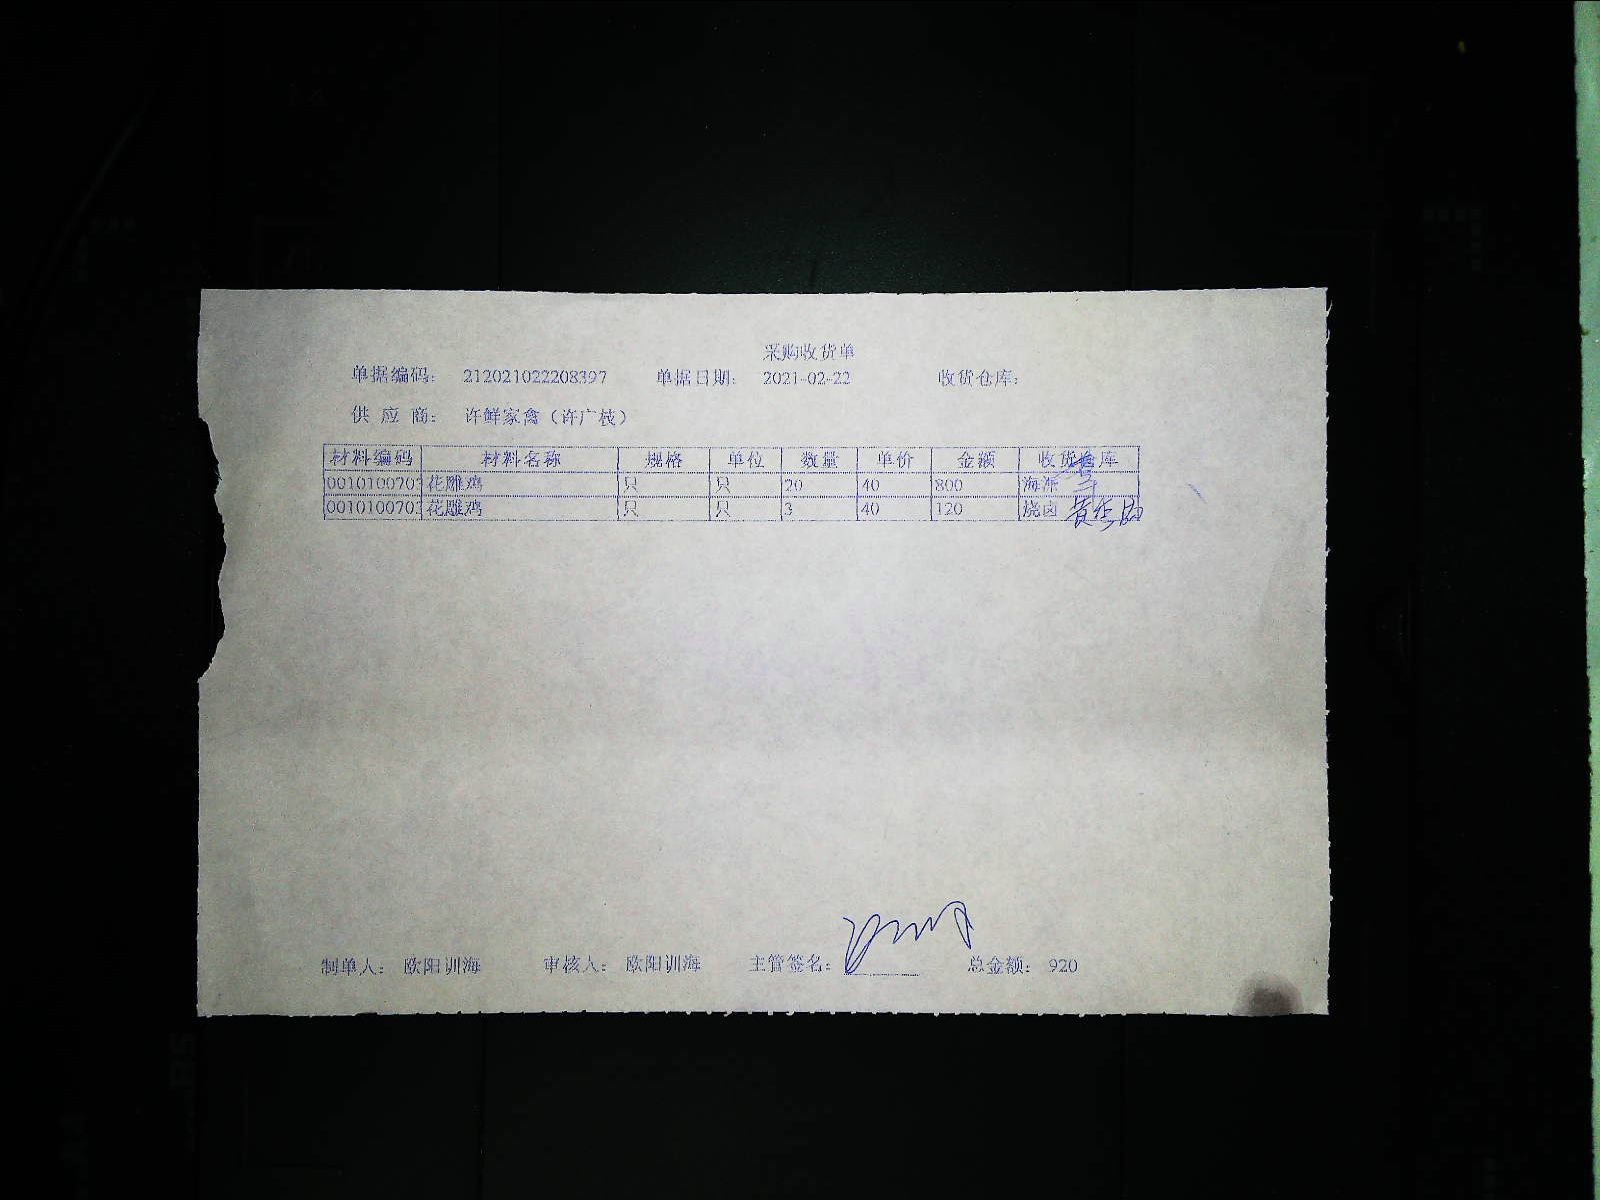 采购收货单
单据编码： 212021022208397 单据日期： 2021-02-22 收货仓库：
供 应 商： 许鲜家禽（许广枝）
材料编码 材料名称 规格 单位 数量 单价 金额 收货仓库
0010100703 花雕鸡 只 只 20 40 800 海派
0010100703 花雕鸡 只 只 3 40 120 烧卤
制单人： 欧阳训海 审核人： 欧阳训海 主管签名： 总金额： 920